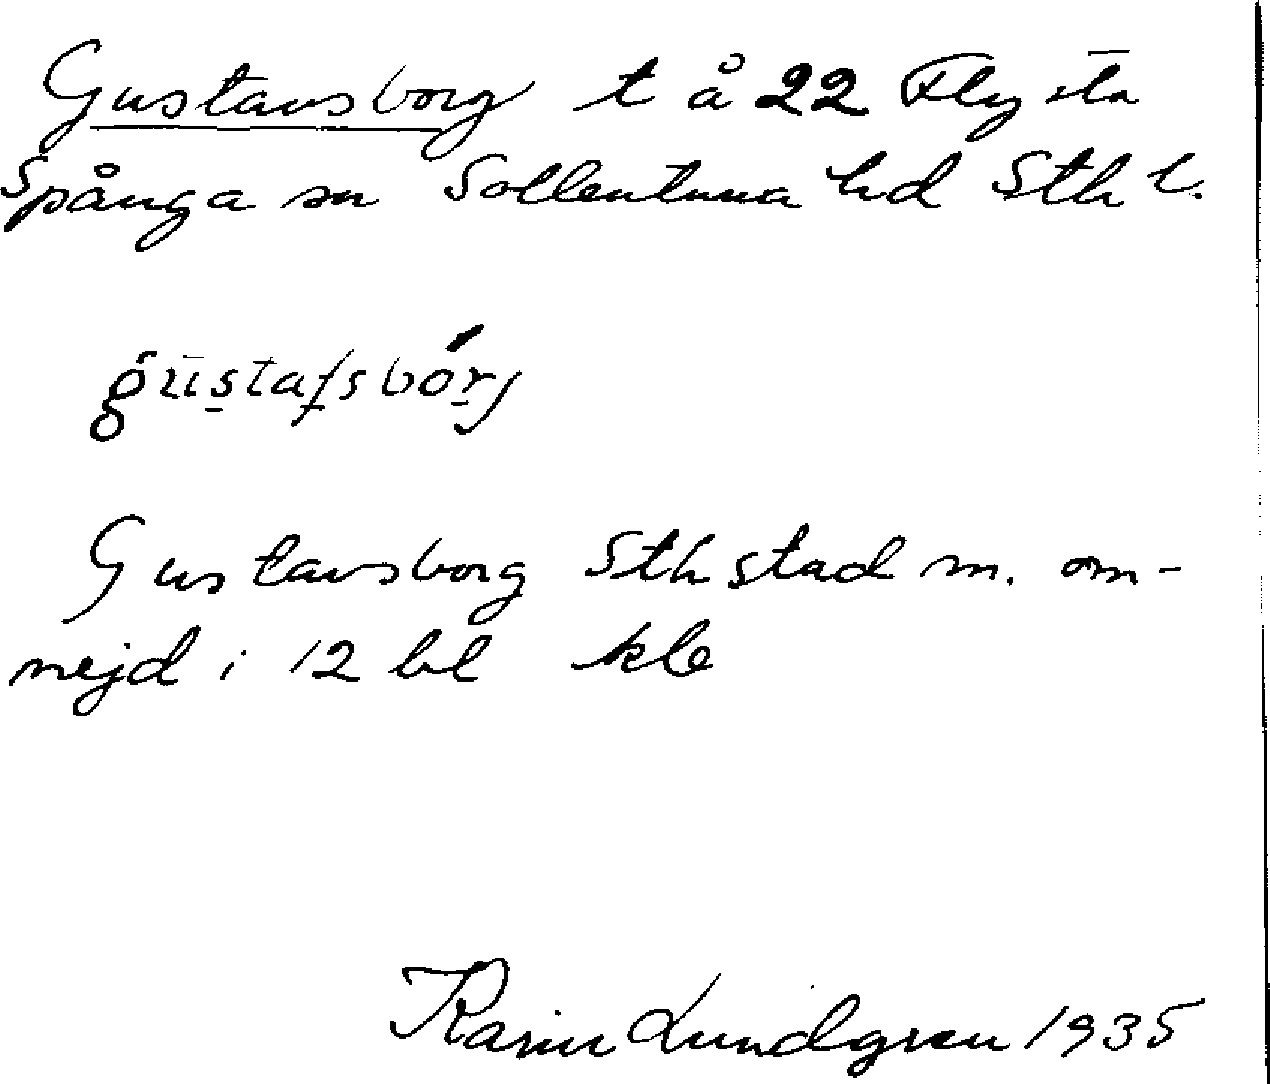 Gustavsborg t å 22 Flysta
Spånga sn Sollentuna hd Sth l.
gustafsbórj
Gustavsborg Sth stad m. om-
nejd i 12 bl kb
Karin Lundgren 1935